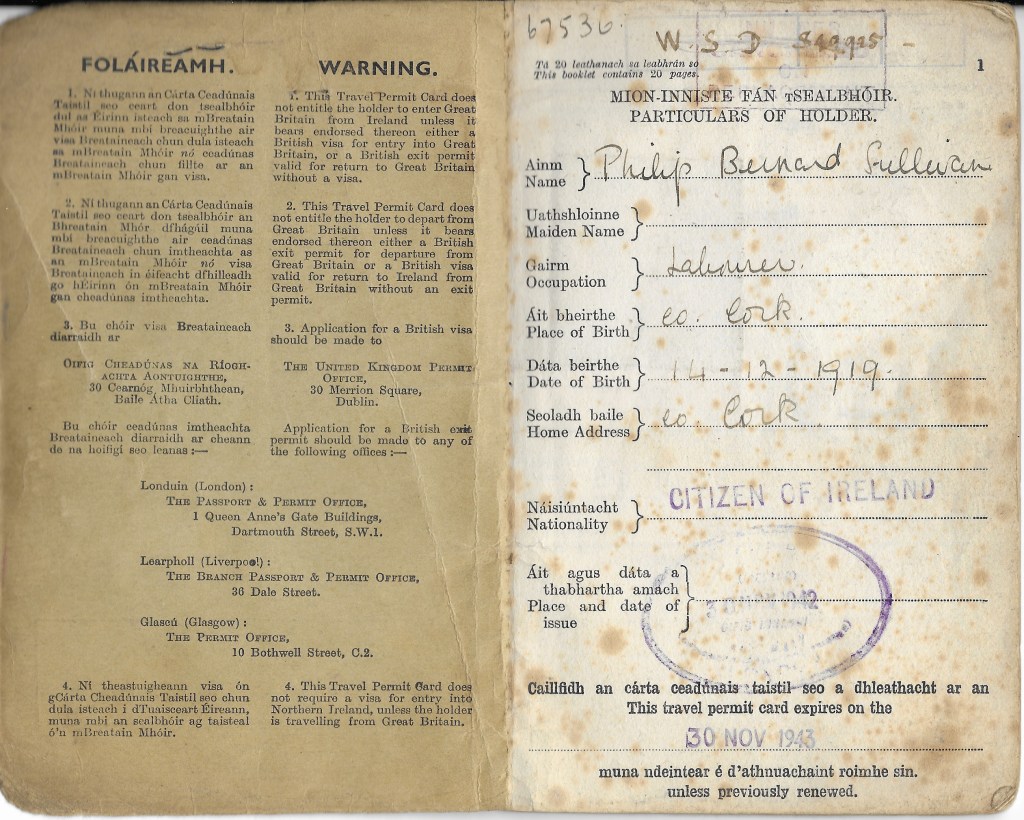 FOLÁIREAMH.
1. Ní thugann an Cárta Ceadúnais
Taistil seo ceart don tsealbhóir
dul as Éirinn isteach sa mBreatain
Mhóir muna mbí breacuighthe air
visa Breataineach chun dula isteach
sa mBreatain Mhóir nó ceadúnas
Breataineach chun fillte ar an
mBreatain Mhóir gan visa.
2. Ní thugann an Cárta Ceadúnais
Taistil seo ceart don tsealbhóir an
Bhreatain Mhór dfhágáil muna
mbí breacuighthe air ceadúnas
Breataineach chun imtheachta as
an mBreatain Mhóir nó visa
Breataineach in éifeacht dfhilleadh
go hÉirinn ón mBreatain Mhóir
gan cheadúnas imtheachta.
3. Bu chóir visa Breataineach
diarraidh ar
OIFIG CHEADÚNAS NA RÍOGH-
ACHTA AONTUIGHTHE,
30 Cearnóg Mhuirbhthean,
Baile Átha Cliath.
Bu chóir ceadúnas imtheachta
Breataineach diarraidh ar cheann
de na hoifigí seo leanas :—
WARNING.
1. This Travel Permit Card does
not entitle the holder to enter Great
Britain from Ireland unless it
bears endorsed thereon either a
British visa for entry into Great
Britain, or a British exit permit
valid for return to Great Britain
without a visa.
2. This Travel Permit Card does
not entitle the holder to depart from
Great Britain unless it bears
endorsed thereon either a British
exit permit for departure from
Great Britain or a British visa
valid for return to Ireland from
Great Britain without an exit
permit.
3. Application for a British visa
should be made to
THE UNITED KINGDOM PERMIT
OFFICE,
30 Merrion Square,
Dublin.
Application for a British exit
permit should be made to any of
the following offices :—
Londuin (London) :
THE PASSPORT & PERMIT OFFICE,
1 Queen Anne's Gate Buildings,
Dartmouth Street, S.W.1.
Learpholl (Liverpool) :
THE BRANCH PASSPORT & PERMIT OFFICE,
36 Dale Street.
Glascú (Glasgow) :
THE PERMIT OFFICE,
10 Bothwell Street, C.2.
4. Ní theastuigheann visa ón
gCárta Cheadúnais Taistil seo chun
dula isteach i dTuaisceart Éireann,
muna mbí an sealbhóir ag taisteal
ó'n mBreatain Mhóir.
4. This Travel Permit Card does
not require a visa for entry into
Northern Ireland, unless the holder
is travelling from Great Britain.
67536.
W S D
Tá 20 leathanach sa leabhrán so
This booklet contains 20 pages.
1
MION-INNISTE FÁN TSEALBHÓIR.
PARTICULARS OF HOLDER.
Ainm
Name } Philip Bernard Sullivan
Uathshloinne
Maiden Name }
Gairm
Occupation } Labourer.
Áit bheirthe
Place of Birth } co. Cork.
Dáta beirthe
Date of Birth } 14 - 12 - 1919.
Seoladh baile
Home Address } co. Cork.
Náisiúntacht
Nationality } CITIZEN OF IRELAND
Áit agus dáta a
thabhartha amach
Place and date of
issue } 1942
Caillfidh an cárta ceadúnais taistil seo a dhleathacht ar an
This travel permit card expires on the
30 NOV 1943
muna ndeintear é d'athnuachaint roimhe sin.
unless previously renewed.